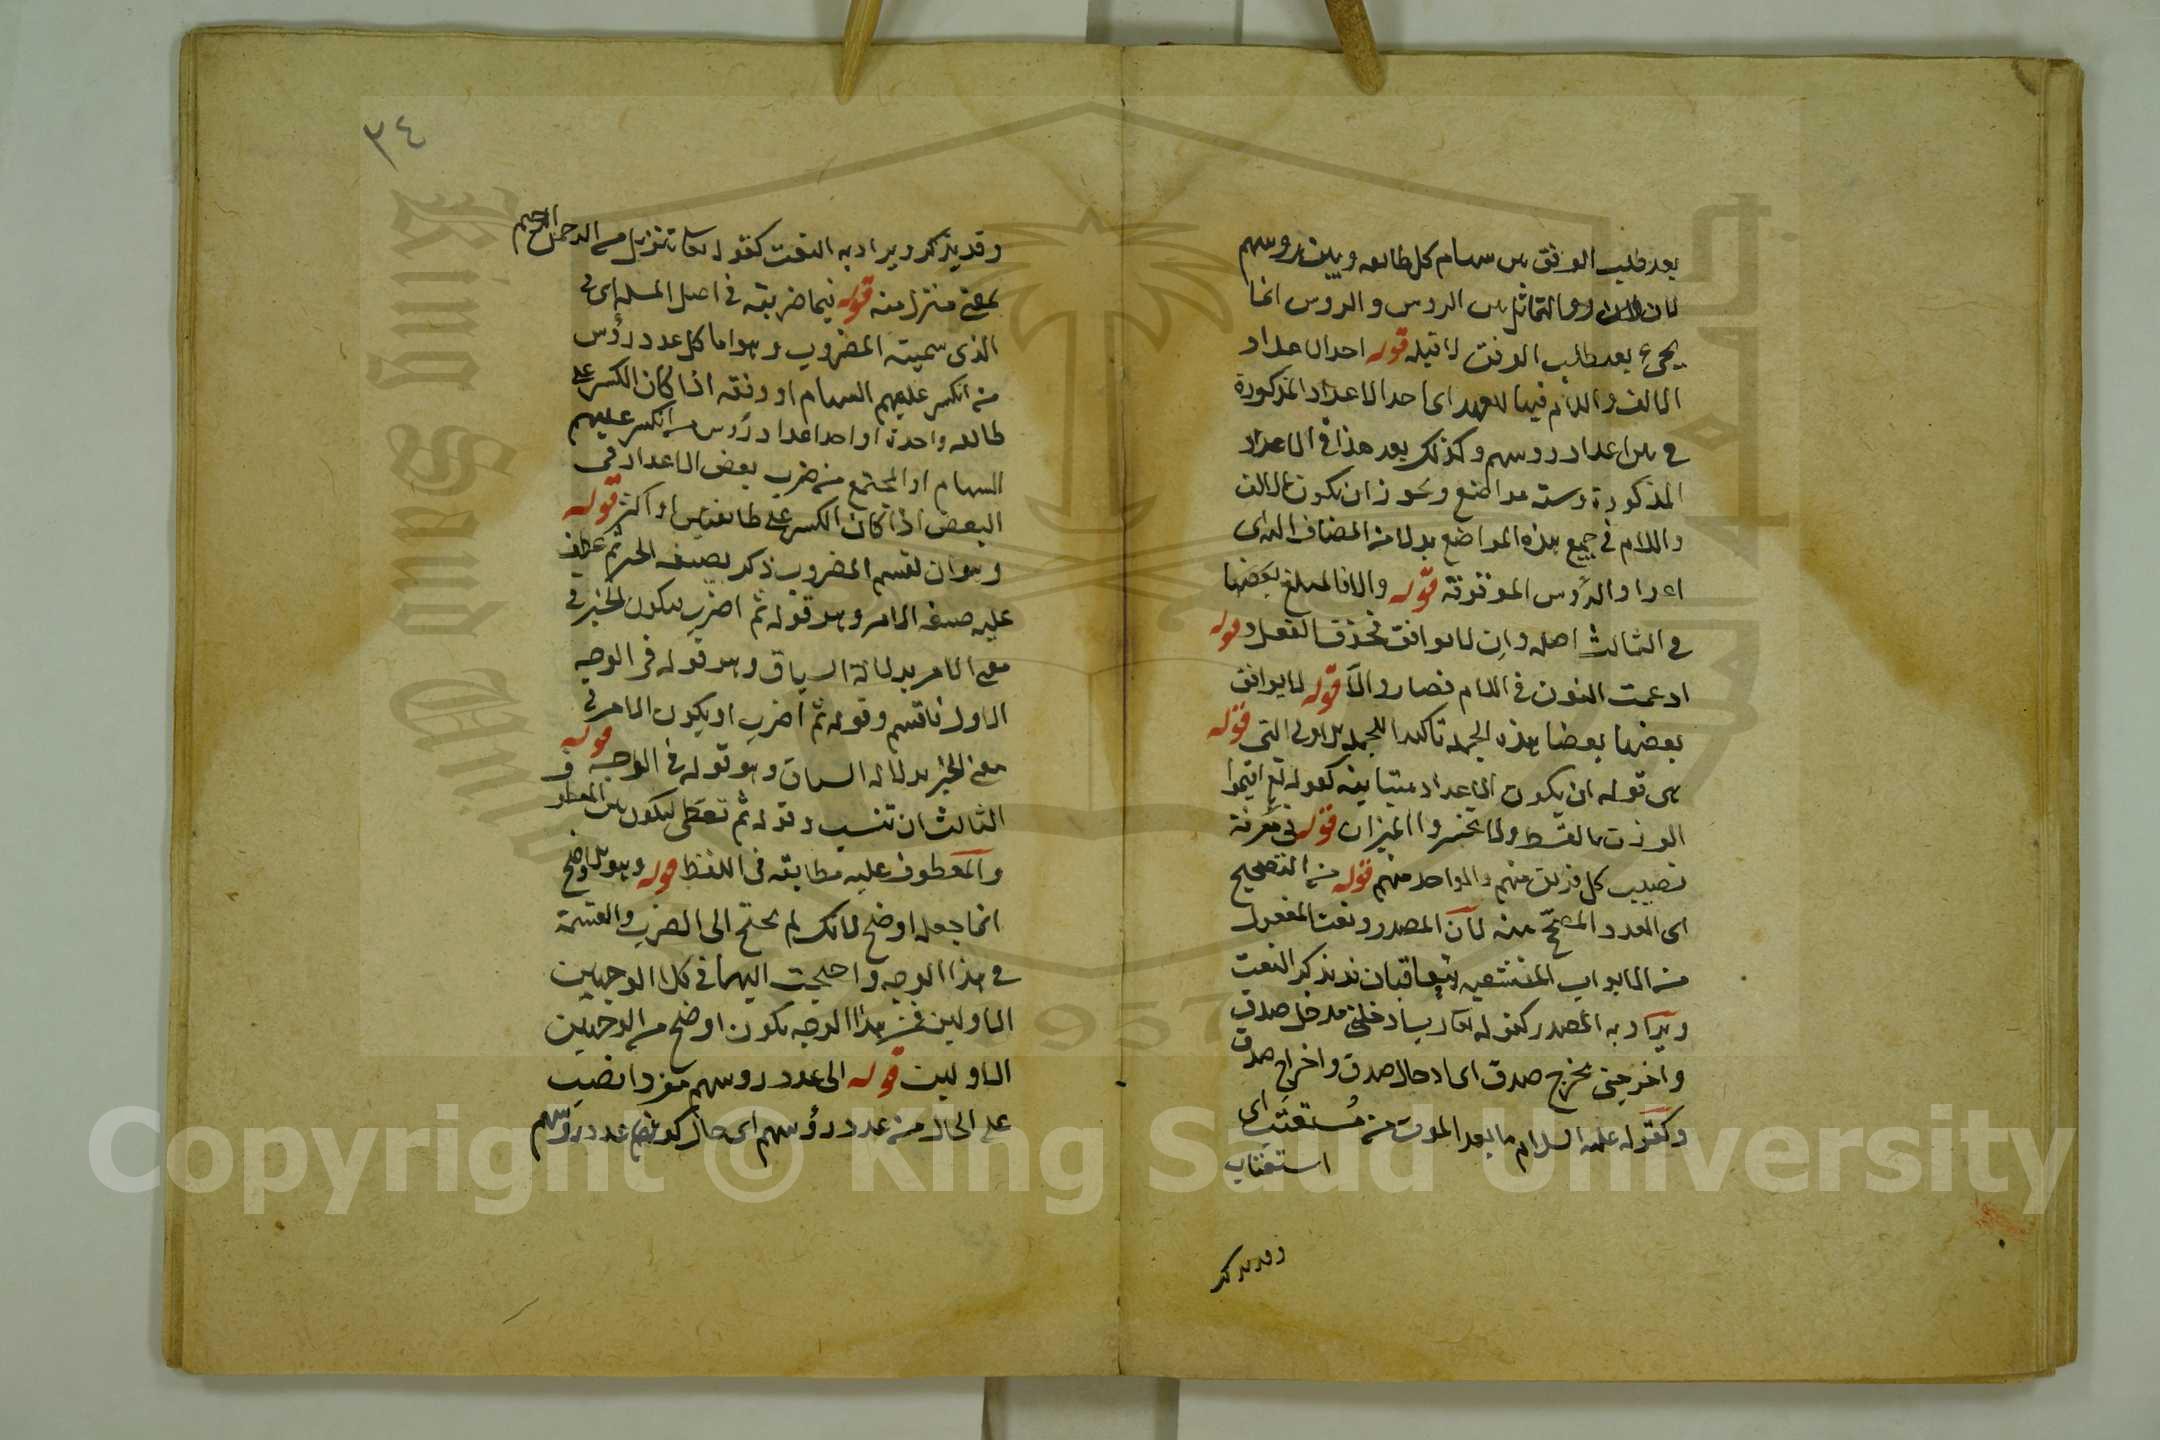 بعد طلب الوفق بين سهام كل طائفه وبين روسهم
لان والتماثل بين الروس والروس انما
يجري بعد طلب الوفق لا قبله قوله احد الاعداد
الالف واللام فيها للعهد اى احد الاعداد المذكورة
في بين اعداد روسهم وكذلك بعد هذا في الاعداد
المذكورة وستة مواضع ويجوز ان يكون الالف
واللام في جميع هذه المواضع بدلا من المضاف اليه اى
اعداد الرؤس الموقوفة قوله والا فالمبلغ بعضها
في الثالث اصله وان لا يوافق فحذف الفعل و قوله
ادغمت النون في اللام فصار والّا قوله لا يوافق
بعضها بعضا هذه الجمله تاكيد للجمله الاولى التى قوله
هى قوله ان يكون الاعداد متباينه كقوله تع اقيموا
الوزن بالقسط ولا تخسروا الميزان قوله في معرفة
نصيب كل فريق منهم والواحد منهم قوله من التصحيح
اى العدد المصحّح منه لان المصدر ونعت المفعول
من الابواب المنشعبه يتعاقبان قد يذكر النعت
ويراد به المصدر كقوله تعا رب ادخلنى مدخل صدق
واخرجنى مخرج صدق اى ادخال صدق واخراج صدق
وكقوله عليه السلام ما بعد الموت من مُستعتب اى
استعتاب
وقد يذكر
٣٤
وقد يذكر ويراد به النعت كقوله تعا تنزيل من الرحمن الرحيم
بمعنى منزلا منه قوله فيما ضربته في اصل المسله اى في
الذى سميته المضروب وهو اما كل عدد رؤس
من انكسر عليهم السهام او وفقه اذا كان الكسر على
طائفه واحدة او احد اعداد رؤس من انكسر عليهم
السهام او المجتمع من ضرب بعض الاعداد في
البعض اذا كان الكسر على طائفتين او اكثر قوله
وهو ان تقسم المضروب ذكر بصيغه الخبر ثم عطف
عليه صيغه الامر وهو قوله ثم اضرب ليكون الخبر في
معنى الامر بدلالة السياق وهو قوله في الوجه
الاول فاقسم وقوله ثم اضرب او يكون الامر في
معنى الخبر بدلاله السياق وهو قوله في الوجه قوله
الثالث ان تنسب وقوله ثم تعطى ليكون بين المعطوف
والمعطوف عليه مطابقه في اللفظ قوله وهو الاوضح
انما جعله اوضح لانك لم تحتج الى الضرب والقسمة
في هذا الوجه واحتجت اليهما في كلا الوجهين
الاولين فمن هذا الوجه يكون اوضح من الوجهين
الاولين قوله الى عدد روسهم مفردا نصب
على الحال من عدد رؤسهم اى حال كون عدد روسهم